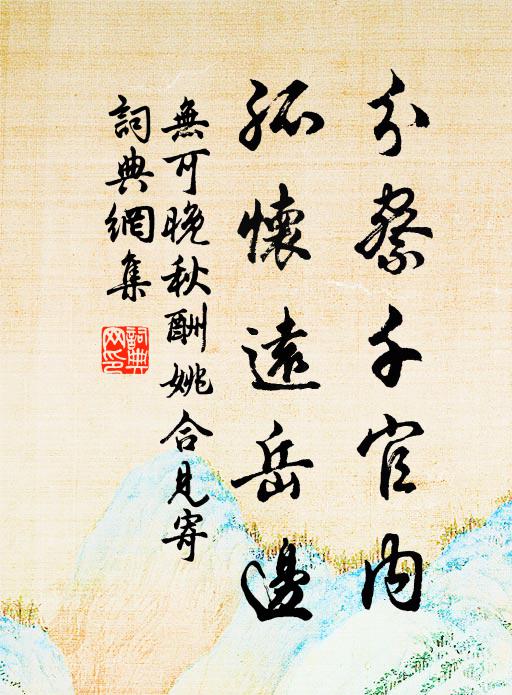 分察千官内
孤懷遠岳邊
無可晚秋酬姚合見寄
詞典網集
詞典網印